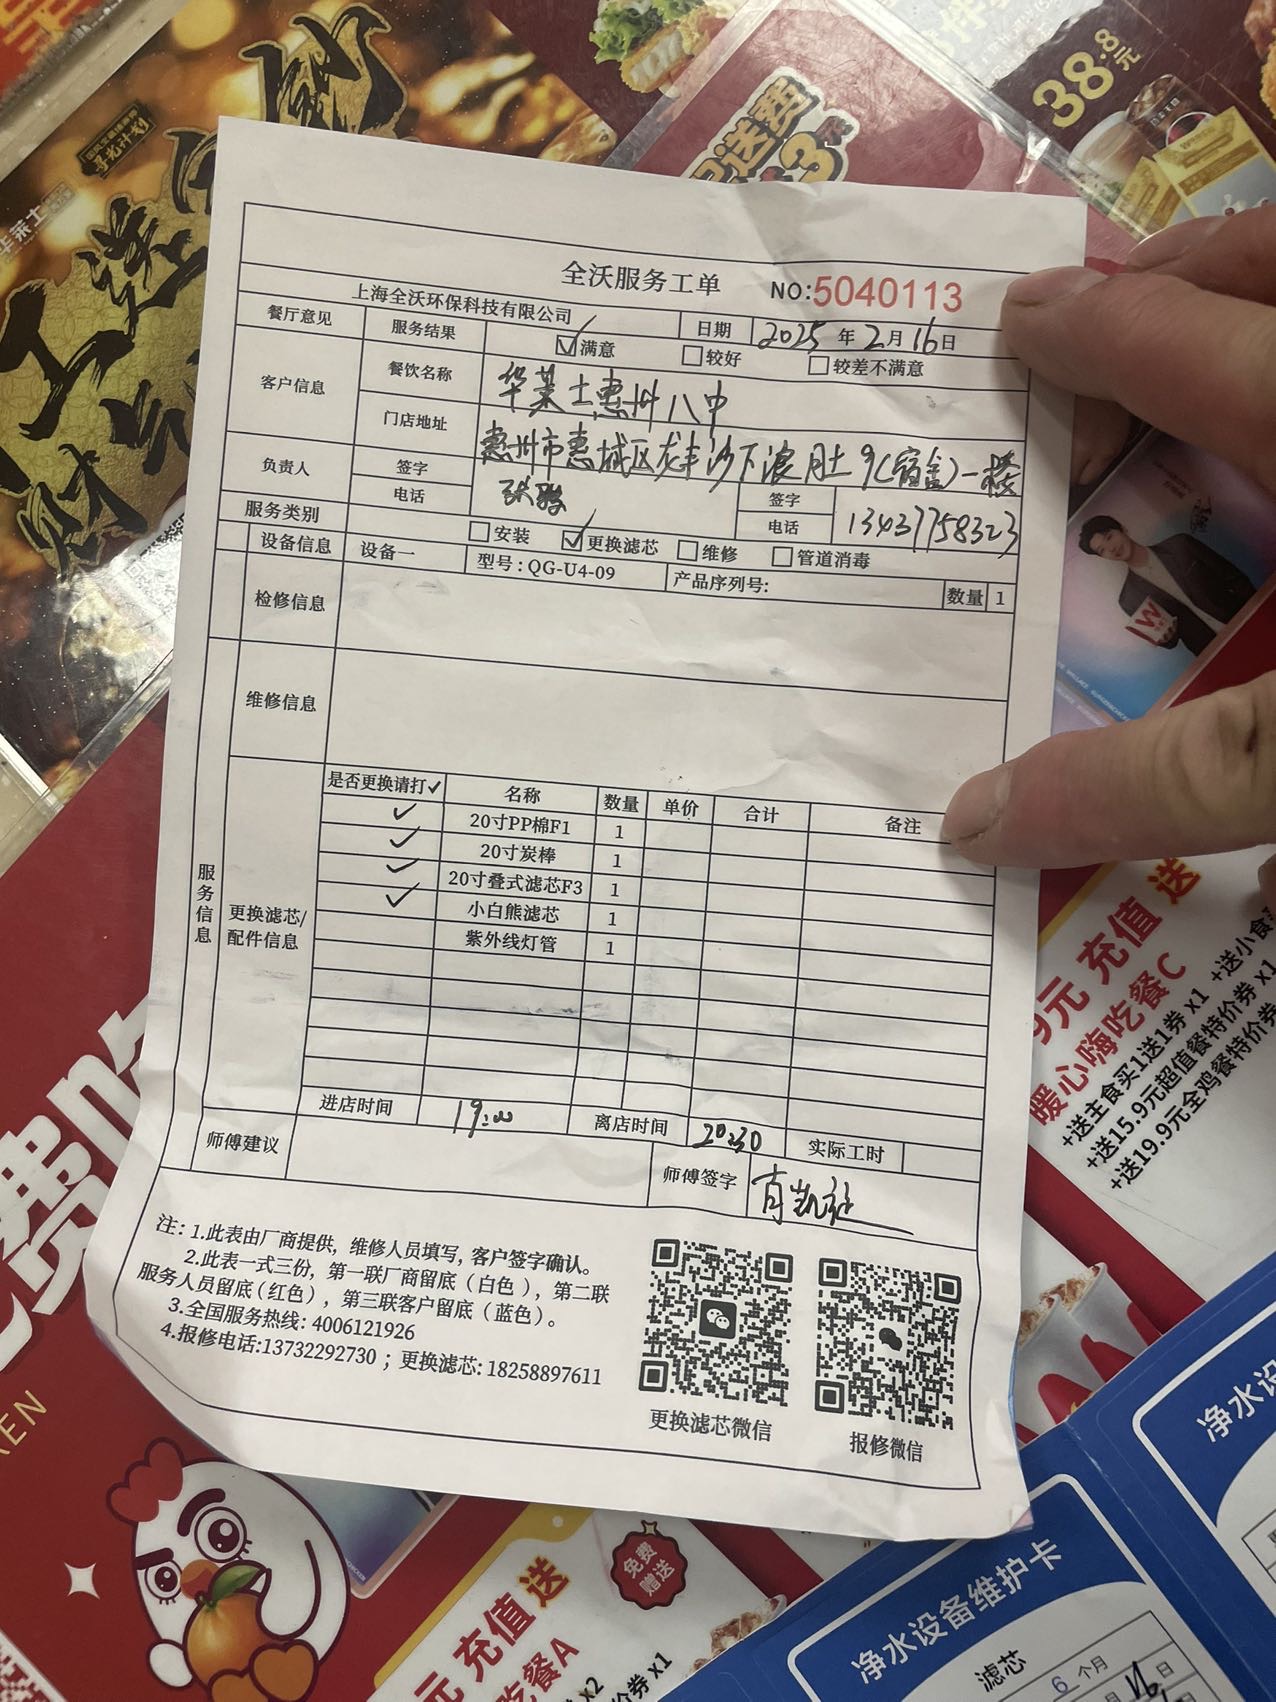 华莱士
寻光计划
配送费
3元
38.8元
全沃服务工单 NO:5040113
上海全沃环保科技有限公司 日期 2025年2月16日
餐厅意见 服务结果 ☑满意 □较好 □较差不满意
客户信息 餐饮名称 华莱士惠州八中
门店地址 惠州市惠城区龙丰沙下浪月土9(宿舍)一楼
负责人 签字 签字
电话 电话 13437758323
服务类别 □安装 ☑更换滤芯 □维修 □管道消毒
设备信息 设备一 型号:QG-U4-09 产品序列号: 数量 1
检修信息
维修信息
服务信息
更换滤芯/配件信息
是否更换请打✓ 名称 数量 单价 合计 备注
✓ 20寸PP棉F1 1
✓ 20寸炭棒 1
✓ 20寸叠式滤芯F3 1
✓ 小白熊滤芯 1
紫外线灯管 1
进店时间 19:00 离店时间 20:30 实际工时
师傅建议 师傅签字
注:1.此表由厂商提供，维修人员填写，客户签字确认。
2.此表一式三份，第一联厂商留底（白色），第二联
服务人员留底(红色)，第三联客户留底（蓝色）。
3.全国服务热线: 4006121926
4.报修电话:13732292730；更换滤芯: 18258897611
更换滤芯微信 报修微信
9元 充值 送
暖心嗨吃餐C
+送主食买1送1券 x1
+送15.9元超值餐特价券 x1
+送19.9元全鸡餐特价券
+送小食
免费
赠送
元 充值 送
吃餐A
净水设备维护卡
滤芯
6 个月
净水设